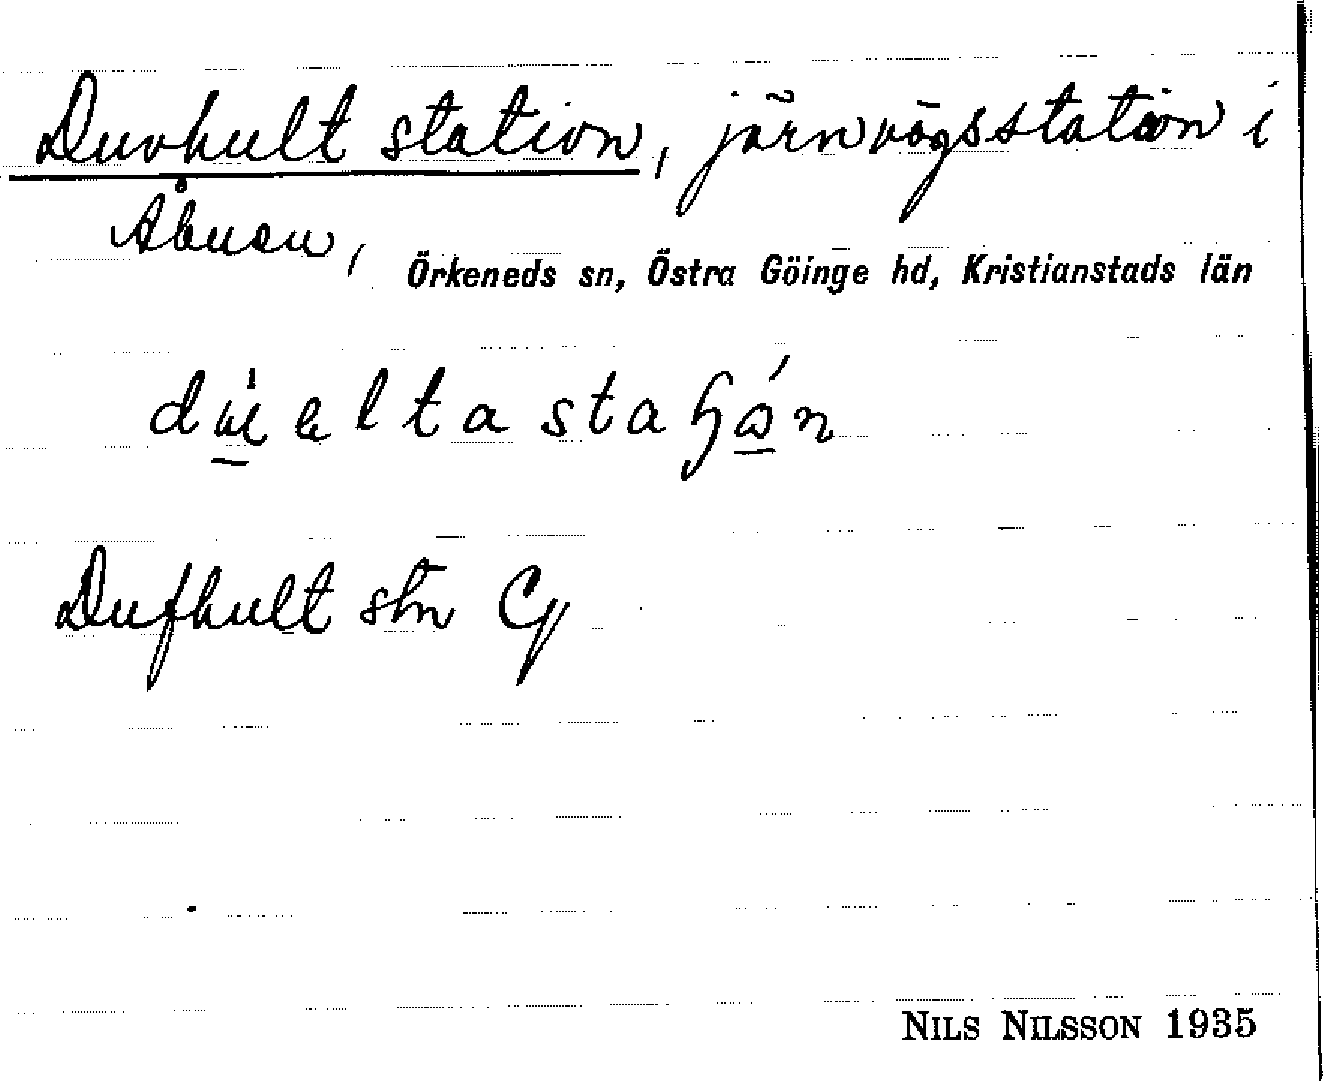 Duvhult station, järnvägsstation i
Åbuen,
Örkeneds sn, Östra Göinge hd, Kristianstads län
Dufhult stn
NILS NILSSON 1935